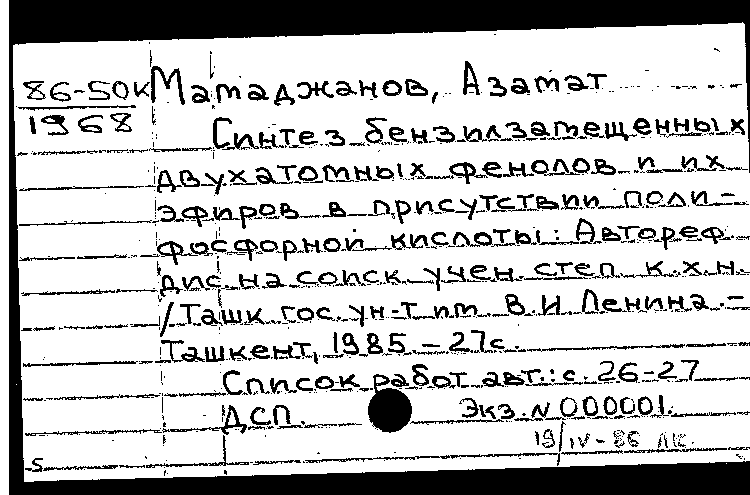 86-50к Маматджанов, Азамат
1968
Синтез бензилзамещенных
двухатомных фенолов и их
эфиров в присутствии поли-
фосфорной кислоты: Автореф
дис. на соиск учен. степ к.х.н.
/Ташк гос. ун-т им В.И Ленина.-
Ташкент, 1985 - 27с.
Список работ авт.: с. 26-27
ДСП. Экз. N 000001.
19/IV-86 ЛК.
5